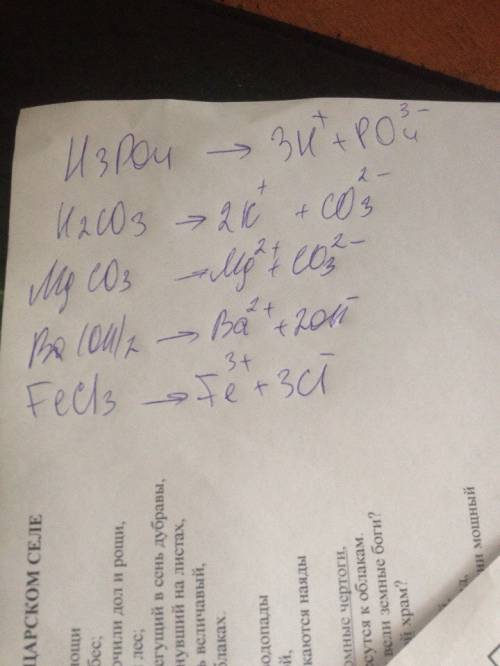 H3PO4 → 3H⁺ + PO4³⁻
K2CO3 → 2K⁺ + CO3²⁻
MgCO3 → Mg²⁺ + CO3²⁻
Ba(OH)2 → Ba²⁺ + 2OH⁻
FeCl3 → Fe³⁺ + 3Cl⁻
ЦАРСКОМ СЕЛЕ
нощи
бес;
очили дол и рощи,
лес;
егущий в сень дубравы,
нувший на листах,
ь величавый,
блаках.
водопады
ой,
каются наяды
мные чертоги,
сутся к облакам.
вели земные боги?
й храм?
ии мощный